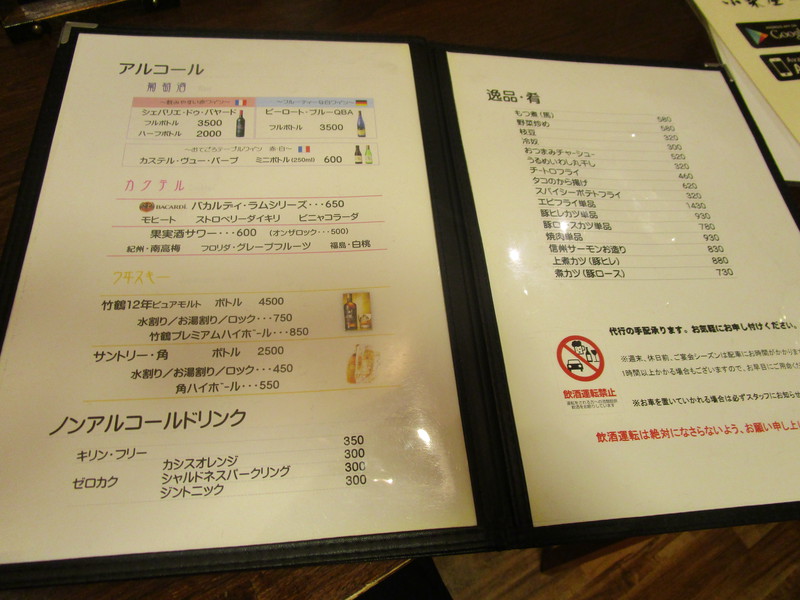 アルコール
葡萄酒
シュバリエ・ドゥ・バヤード
フルボトル 3500
ハーフボトル 2000
～フルーティーな白ワイン～
ピーロート・ブルーQBA
フルボトル 3500
カステル・ヴュー・パープ ミニボトル(250ml) 600
カクテル
BACARDI バカルディ・ラムシリーズ・・・650
モヒート ストロベリーダイキリ ピニャコラーダ
果実酒サワー・・・600 (オンザロック・・・500)
紀州・南高梅 フロリダ・グレープフルーツ 福島・白桃
ウヰスキー
竹鶴12年ピュアモルト ボトル 4500
水割り／お湯割り／ロック・・・750
竹鶴プレミアムハイボール・・・850
サントリー・角 ボトル 2500
水割り／お湯割り／ロック・・・450
角ハイボール・・・550
ノンアルコールドリンク
キリン・フリー 350
ゼロカク カシスオレンジ 300
シャルドネスパークリング 300
ジントニック 300
逸品・肴
もつ煮（馬） 580
野菜炒め 580
枝豆 320
冷奴 300
おつまみチャーシュー 520
うるめいわし丸干し 320
チートロフライ 460
タコのから揚げ 620
スパイシーポテトフライ 320
エビフライ単品 1430
豚ヒレカツ単品 930
豚ロースカツ単品 780
焼肉単品 930
信州サーモンお造り 830
上煮カツ（豚ヒレ） 880
煮カツ（豚ロース） 730
代行の手配承ります。お気軽にお申し付けください。
※週末、休日前、ご宴会シーズンは配車にお時間がかかります
1時間以上かかる場合もございますので、お早目にご用命くだ
※お車を置いていかれる場合は必ずスタッフにお知らせ
飲酒運転禁止
飲酒運転は絶対になさらないよう、お願い申し上げ